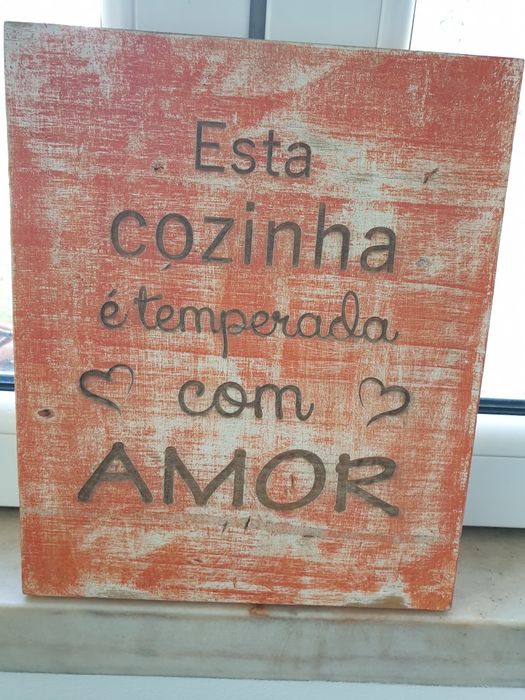 Esta
cozinha
é temperada
com
AMOR